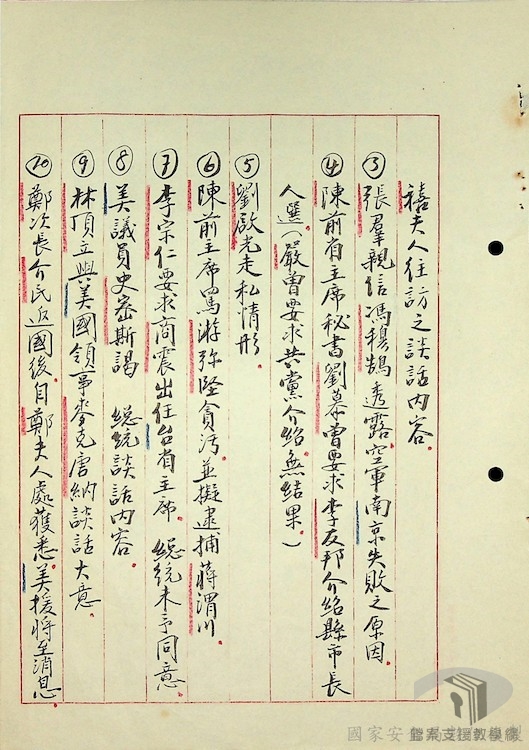 禧夫人往訪之談話內容
③張羣親信馮穆鵠透露空軍南京失敗之原因
④陳前省主席秘書劉慕曾要求李友邦介紹縣市長
人選（嚴曾要求共黨介紹無結果）
⑤劉啟光走私情形
⑥陳前主席罵游弥堅貪污並擬逮捕蔣渭川
⑦李宗仁要求商震出任台省主席　總統未予同意
⑧美議員史密斯謁　總統談話內容
⑨林頂立與美國領事麥克唐納談話大意
⑩鄭次長介民返國後自鄭夫人處獲悉美援將至消息
國家安
檔案支援教學網